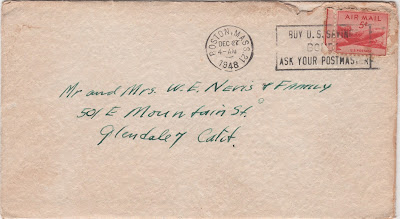 BOSTON, MASS.
DEC 22
4-PM
1948
BUY U.S. SAVINGS
BONDS
ASK YOUR POSTMASTER
AIR MAIL
5¢
Mr and Mrs. W. E. Nevis & Family
501 E Mountain St.
Glendale, Calif.